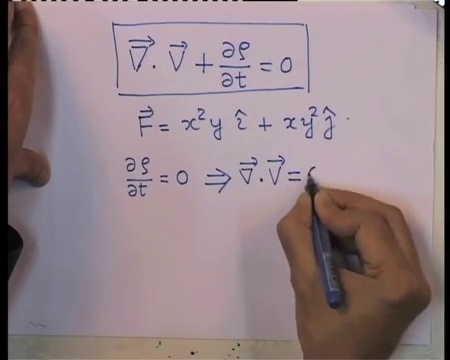 ∇⃗ . V⃗ + ∂ρ/∂t = 0
F⃗ = x²y î + xy² ĵ
∂ρ/∂t = 0 ⇒ ∇⃗ . V⃗ =